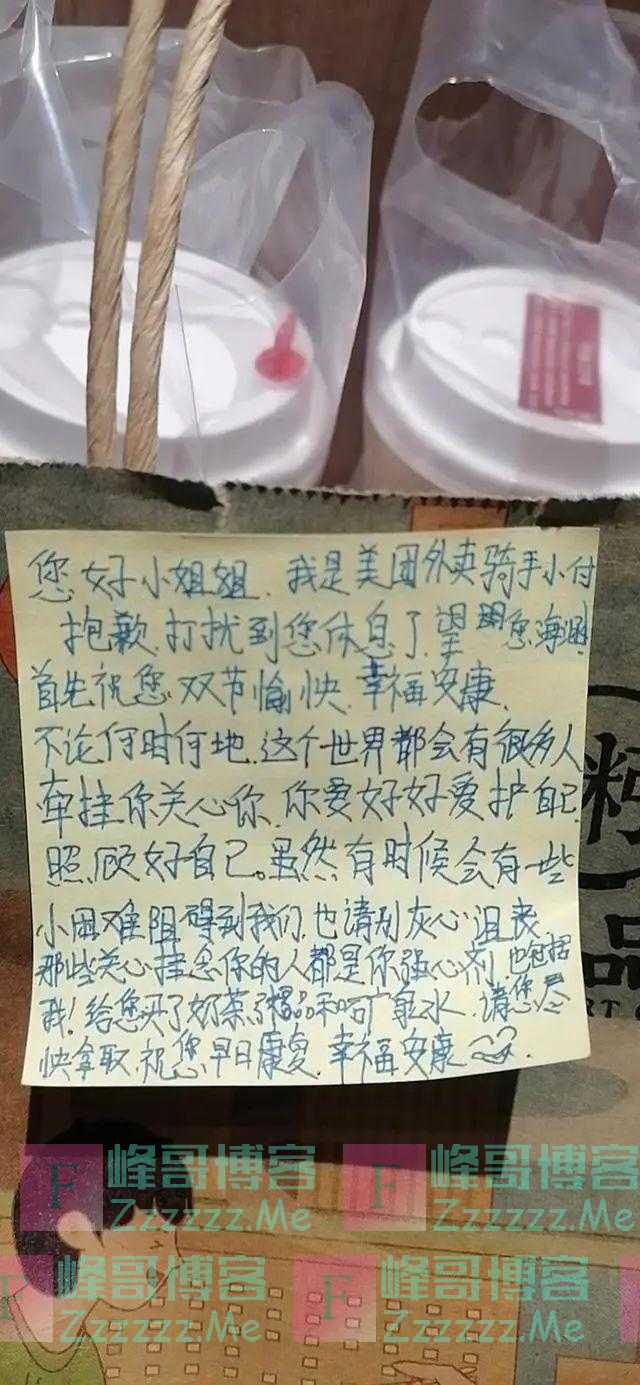 您好小姐姐，我是美团外卖骑手小付
抱歉，打扰到您休息了，望 您海涵
首先祝您双节愉快，幸福安康，
不论何时何地，这个世界都会有很多人
牵挂你关心你，你要好好爱护自己
照顾好自己。虽然有时候会有一些
小困难阻碍到我们，也请别灰心沮丧
那些关心挂念你的人都是你强心剂，也包括
我！给您买了奶茶 粥品和矿泉水，请您尽
快拿取，祝您早日康复，幸福安康
品
RT
F 峰哥博客 F 峰哥博客
Zzzzzz.Me Zzzzzz.Me
峰哥博客 F 峰哥博客
Zzzzzz.Me Zzzzzz.Me